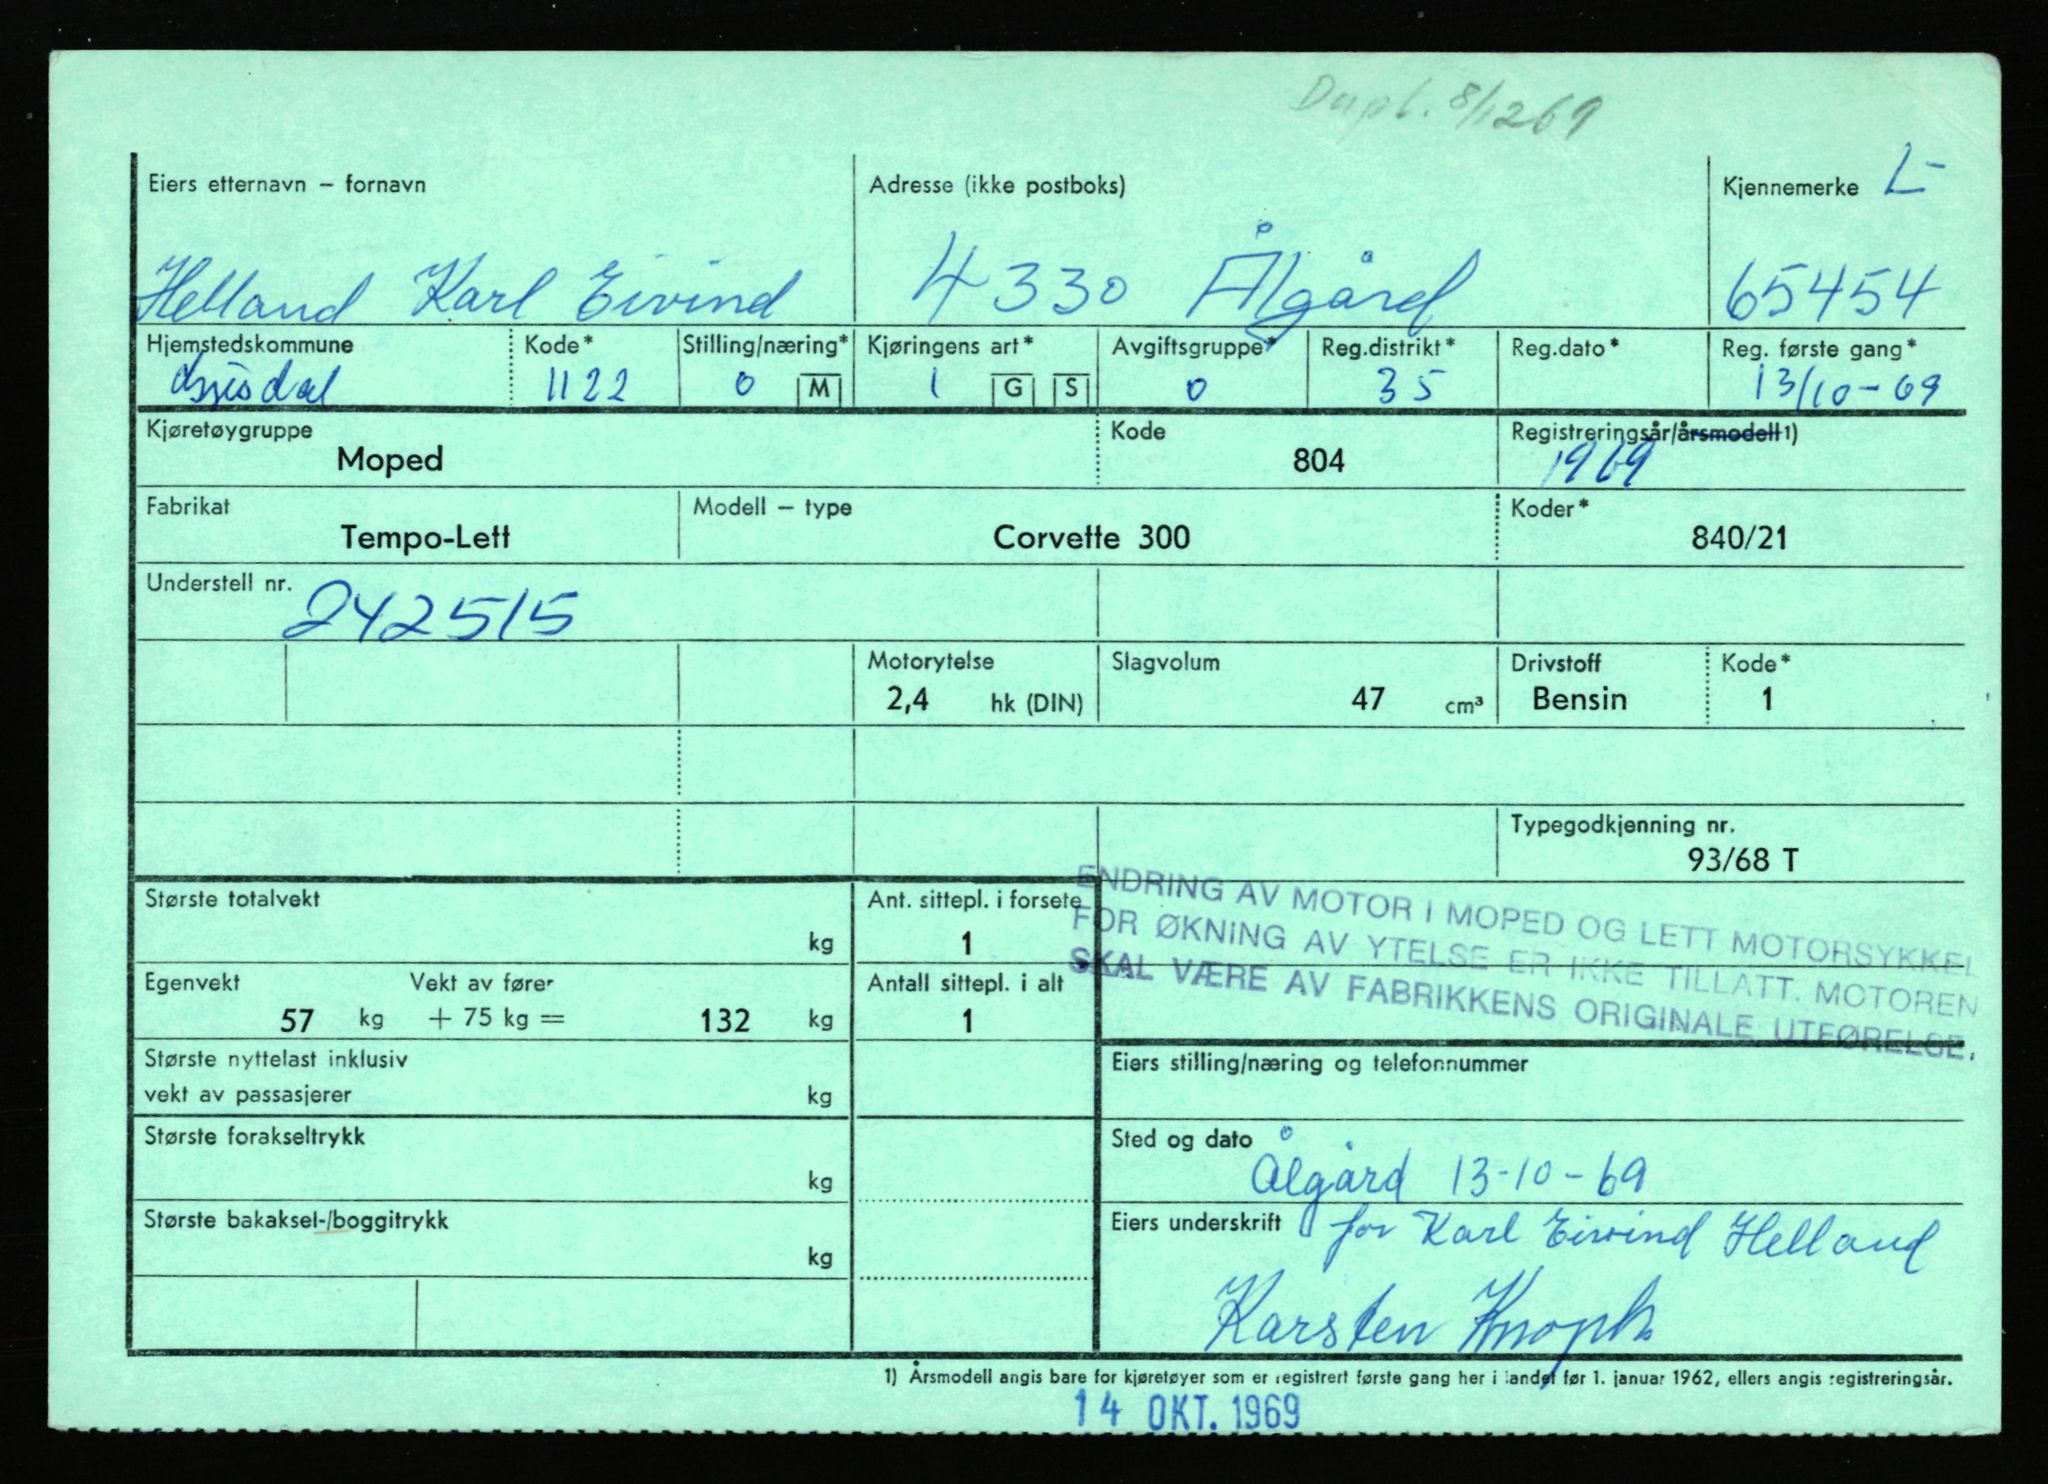 Dupl. 8/12 69
Eiers etternavn – fornavn Adresse (ikke postboks) Kjennemerke L-
Helland Karl Eivind 4330 Ålgård 65454
Hjemstedskommune Kode* Stilling/næring* Kjøringens art* Avgiftsgruppe* Reg.distrikt* Reg.dato* Reg. første gang*
Gjesdal 1122 0 M 1 G S 0 35 13/10-69
Kjøretøygruppe Kode Registreringsår/årsmodell 1)
Moped 804 1969
Fabrikat Modell – type Koder*
Tempo-Lett Corvette 300 840/21
Understell nr.
242515
Motorytelse Slagvolum Drivstoff Kode*
2,4 hk (DIN) 47 cm³ Bensin 1
Typegodkjenning nr.
93/68 T
ENDRING AV MOTOR I MOPED OG LETT MOTORSYKKEL
FOR ØKNING AV YTELSE ER IKKE TILLATT. MOTOREN
SKAL VÆRE AV FABRIKKENS ORIGINALE UTFØRELSE.
Største totalvekt Ant. sittepl. i forsete
kg 1
Egenvekt Vekt av fører Antall sittepl. i alt
57 kg + 75 kg = 132 kg 1
Største nyttelast inklusiv Eiers stilling/næring og telefonnummer
vekt av passasjerer kg
Største forakseltrykk Sted og dato
kg Ålgård 13-10-69
Største bakaksel-/boggitrykk Eiers underskrift for Karl Eivind Helland
kg
Karsten
1) Årsmodell angis bare for kjøretøyer som er registrert første gang her i landet før 1. januar 1962, ellers angis registreringsår.
14 OKT. 1969